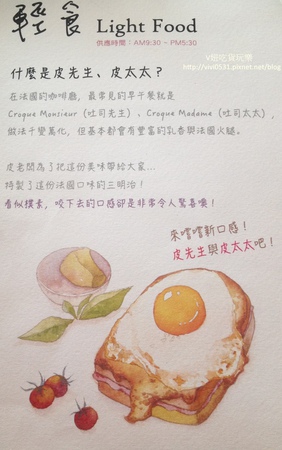 輕食 Light Food
供應時間：AM9:30 ~ PM5:30
V妞吃貨玩樂
http://vivi0531.pixnet.net/blog
什麼是皮先生、皮太太？
在法國的咖啡廳，最常見的早午餐就是
Croque Monsieur (吐司先生)、Croque Madame (吐司太太)，
做法千變萬化，但基本都會有豐富的乳香與法國火腿。
皮老闆為了把這份美味帶給大家...
特製了這份法國口味的三明治！
看似樸素，咬下去的口感卻是非常令人驚喜噢！
來嚐嚐新口感！
皮先生與皮太太吧！